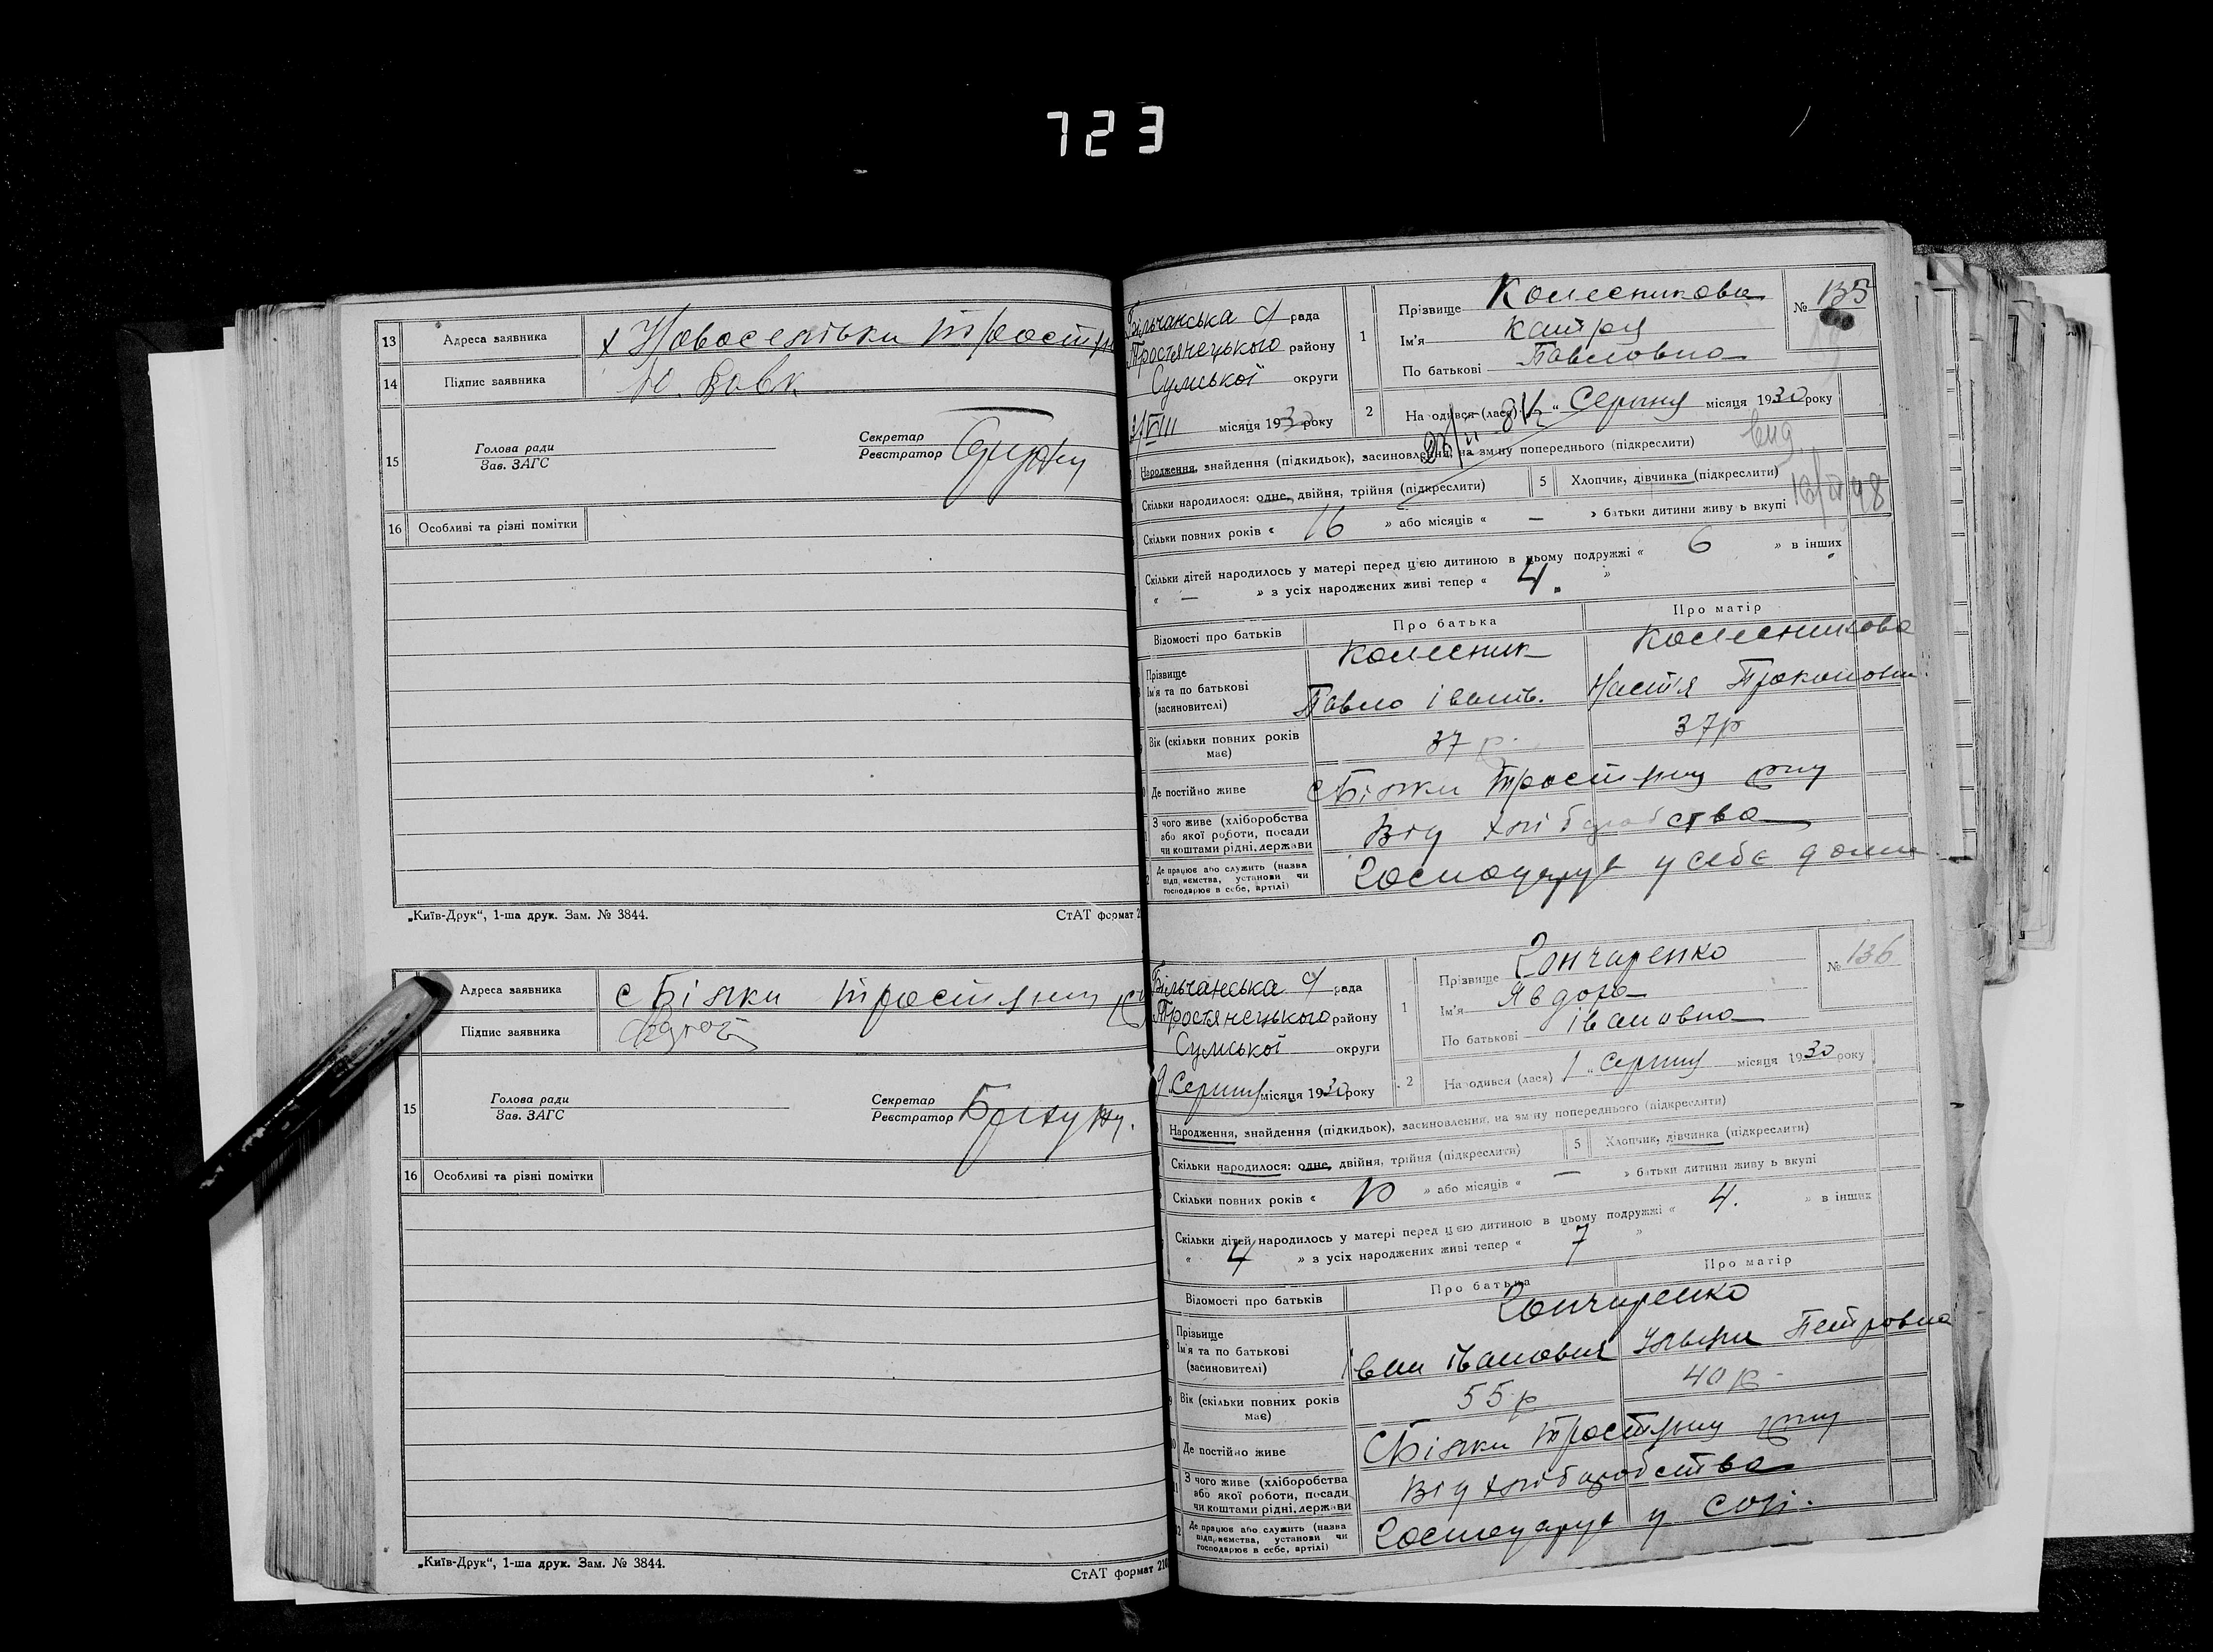 723
13 Адреса заявника х Новоселівка Тростян
14 Підпис заявника Ю. Вовк
15 Голова ради
Зав. ЗАГС
Секретар
Реєстратор
16 Особливі та різні помітки
„Київ-Друк“, 1-ша друк. Зам. № 3844.
СтАТ формат 2
Адреса заявника с Білки тростянец
Підпис заявника
15 Голова ради
Зав. ЗАГС
Секретар
Реєстратор
16 Особливі та різні помітки
„Київ-Друк“, 1-ша друк. Зам. № 3844.
СтАТ формат 210
Більчанська с/ рада
Тростянецького району
Сумської округи
VIII місяця 1930 року
1 Прізвище Колесникова
Ім'я Катря
По батькові Павловна
№ 135
2 На одився (лася) " Серпня місяця 1930 року
Народження, знайдення (підкидьок), засиновлення, на зміну попереднього (підкреслити)
Скільки народилося: одне, двійня, трійня (підкреслити)
5 Хлопчик, дівчинка (підкреслити)
Скільки повних років « 16 » або місяців « — » батьки дитини живу ь вкупі
Скільки дітей народилось у матері перед цією дитиною в цьому подружжі « 6 » в інших
« — » з усіх народжених живі тепер « 4. »
Відомості про батьків Про батька Про матір
Прізвище
Ім'я та по батькові
(засиновителі)
Колесник Колесникова
Павло Іванів. Настя Прокоповна
Вік (скільки повних років має) 37 р. 37р
Де постійно живе с Білки Тростянец рну
З чого живе (хліборобства
або якої роботи, посади
чи коштами рідні, держави
Від хліборобства
Де працює або служить (назва
підп,иємства, установи чи
господарює в себе, артілі)
Господарує у себе дома
Більчанська с/ рада
Тростянецького району
Сумської округи
9 Серпня місяця 1930 року
1 Прізвище Гончаренко
Ім'я Явдоха
По батькові Івановна
№ 136
2 Народився (лася) 1 „ Серпня місяця 1930 року
Народження, знайдення (підкидьок), засиновлення, на зміну попереднього (підкреслити)
Скільки народилося: одне, двійня, трійня (підкреслити)
5 Хлопчик, дівчинка (підкреслити)
Скільки повних років « 10 » або місяців « — » батьки дитини живу ь вкупі
Скільки дітей народилось у матері перед цією дитиною в цьому подружжі « 4. » в інших
« 4 » з усіх народжених живі тепер « 7 »
Відомості про батьків Про батька Про матір
Прізвище
Ім'я та по батькові
(засиновителі)
Гончаренко
Іван Іванович Петровна
Вік (скільки повних років має) 55 р 40 р.
Де постійно живе с Білки Тростянец рну
З чого живе (хліборобства
або якої роботи, посади
чи коштами рідні, держави
Від хліборобства
Де працює або служить (назва
підп,иємства, установи чи
господарює в себе, артілі)
Господарує у